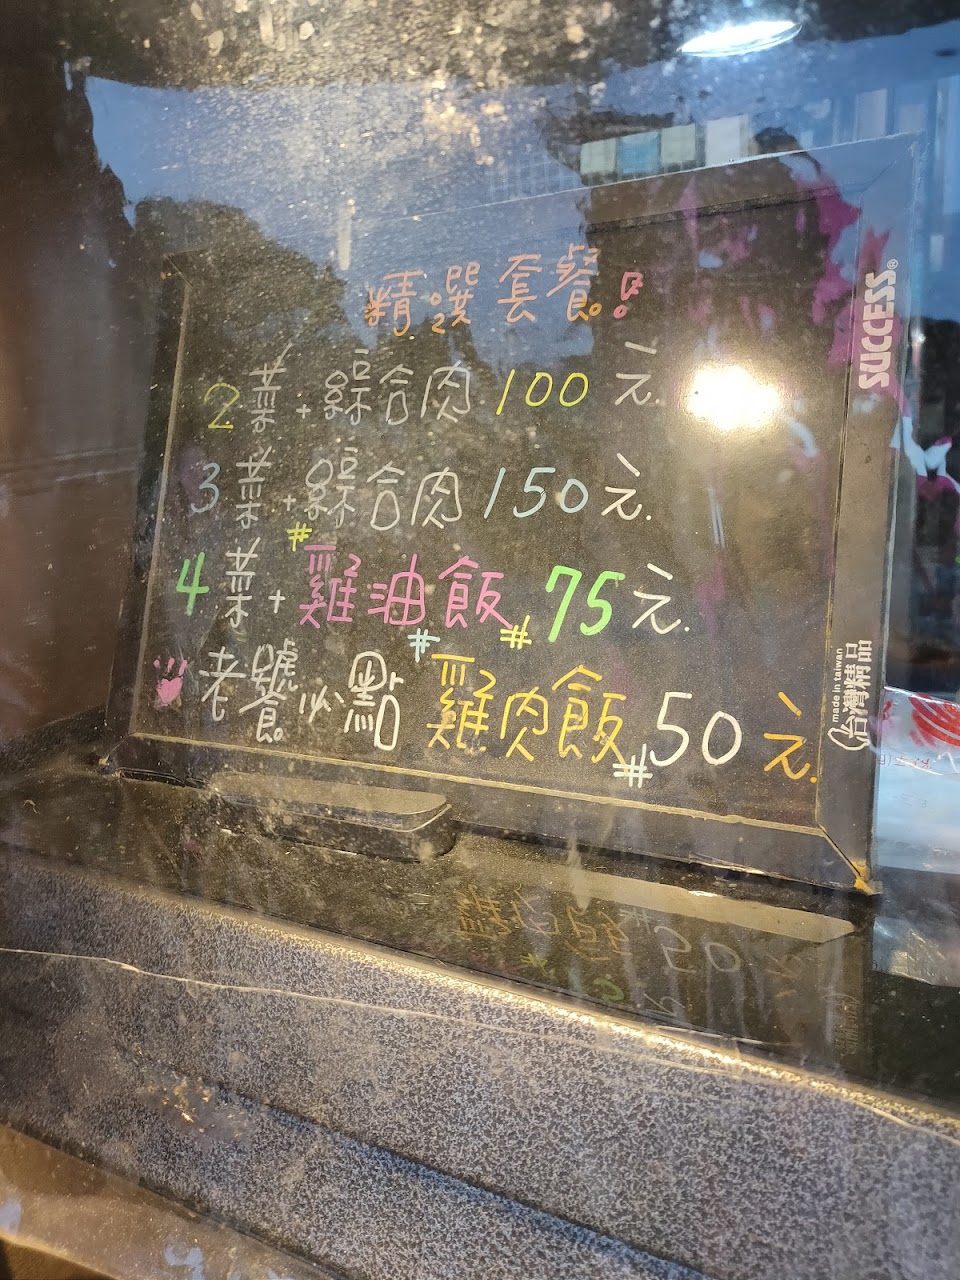 精選套餐!
2菜+綜合肉 100元.
3菜+綜合肉 150元.
4菜+#雞油飯# 75元.
老饕必點#雞肉飯# 50元.
SUCCESS®
made in taiwan
台灣精品